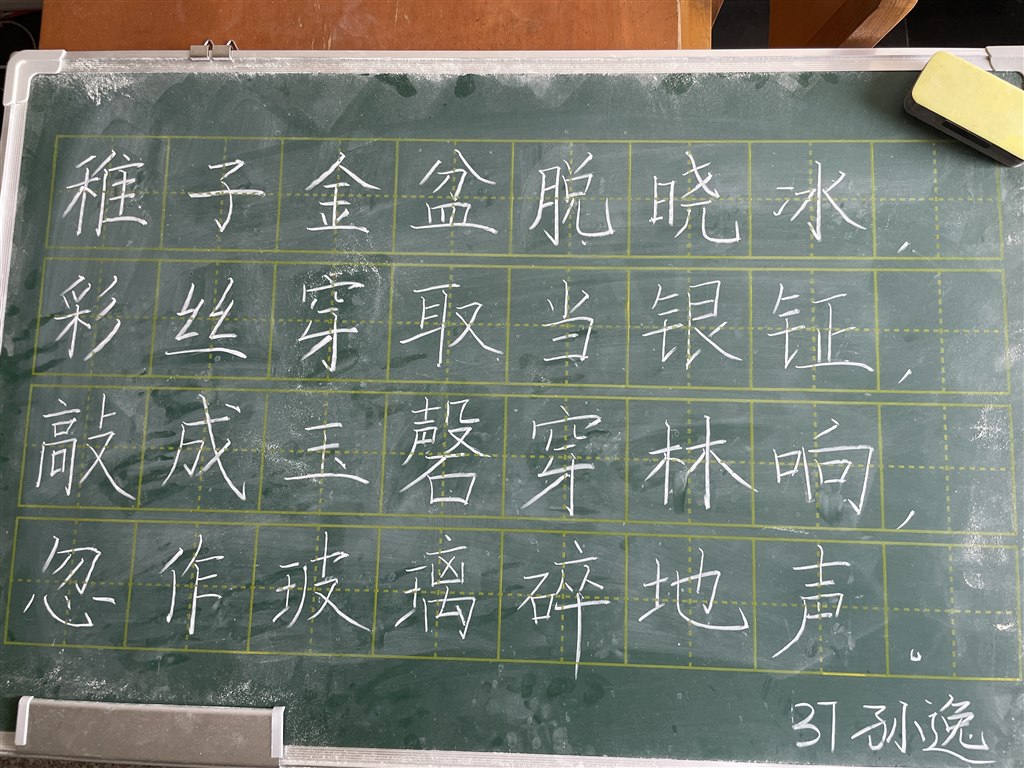 稚子金盆脱晓冰，
彩丝穿取当银钲，
敲成玉磬穿林响，
忽作玻璃碎地声。
37 孙逸